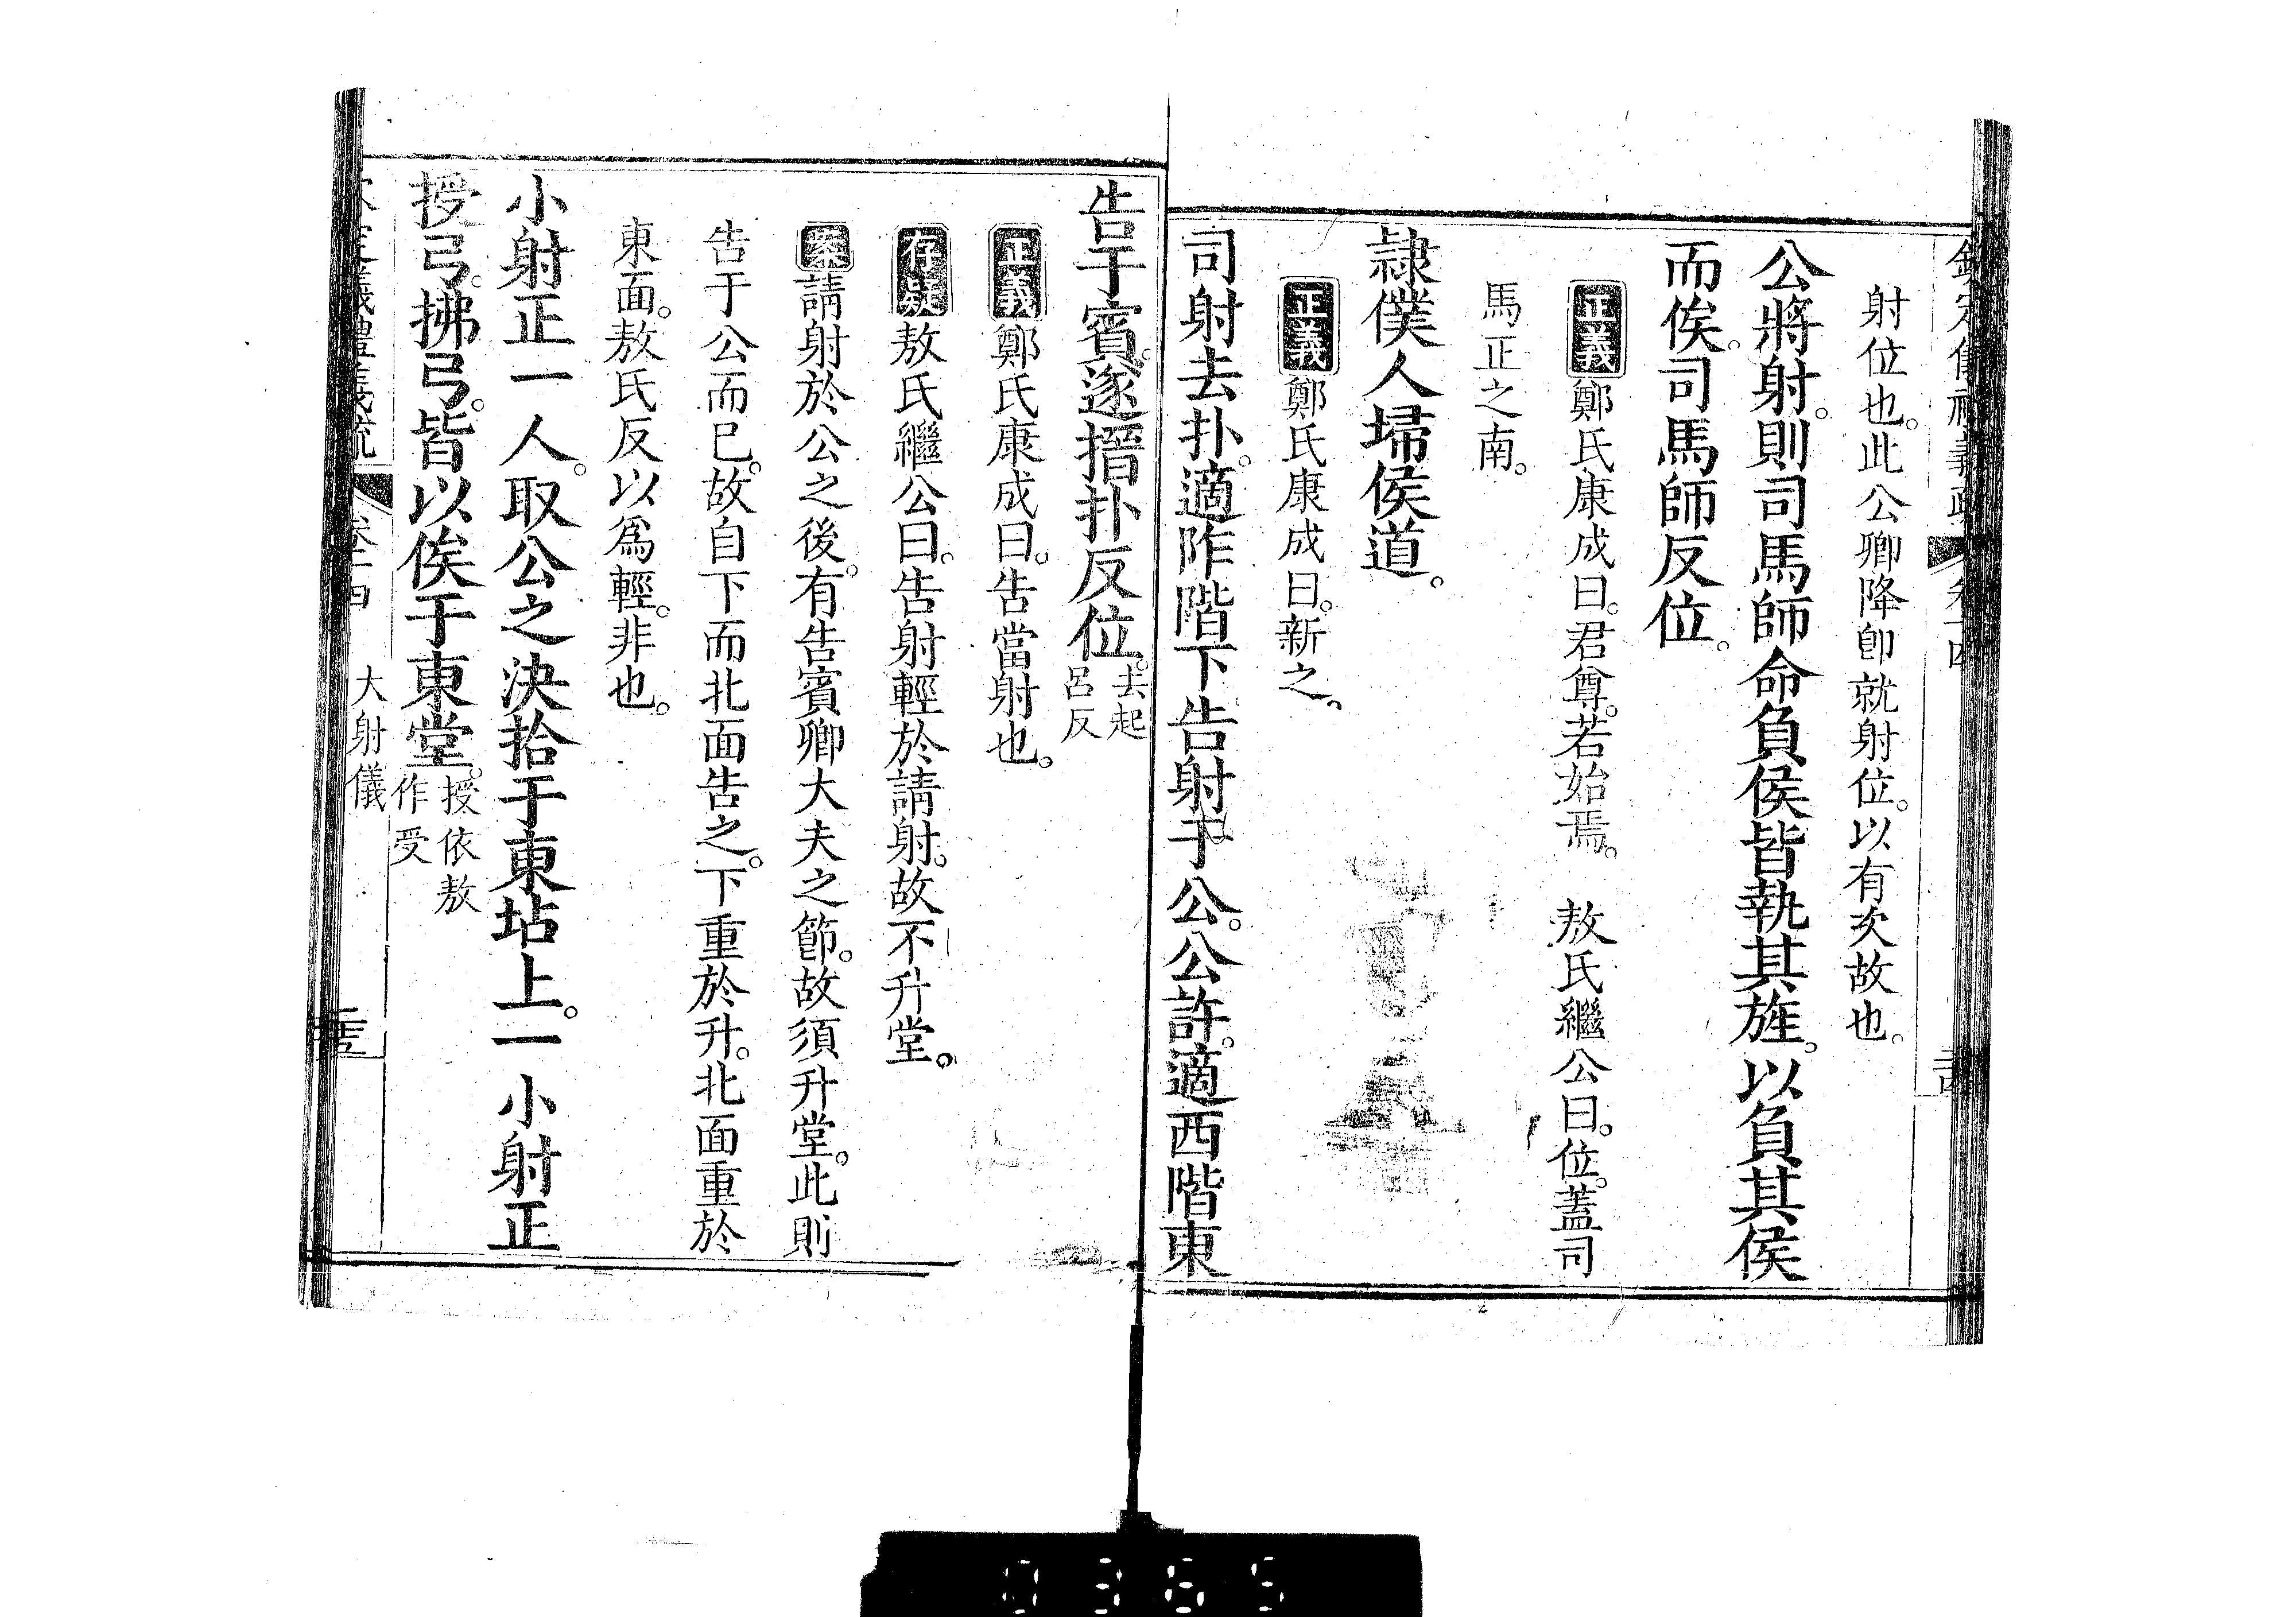 欽定儀禮義疏 卷十四
射位也。此公卿降卽就射位。以有次故也。
公將射。則司馬師命負侯皆執其旌。以負其侯
而俟。司馬師反位。
正義鄭氏康成曰。君尊。若始焉。 敖氏繼公曰。位。蓋司
馬正之南。
隷僕人埽侯道。
正義鄭氏康成曰。新之。
司射去扑。適阼階下。告射于公。公許。適西階東
告于賓。遂搢扑反位。去起呂反
正義鄭氏康成曰。告當射也。
存疑敖氏繼公曰。告射輕於請射。故不升堂。
案請射於公之後。有告賓卿大夫之節。故須升堂。此則
告于公而已。故自下而北面告之。下重於升。北面重於
東面。敖氏反以爲輕。非也。
小射正一人。取公之決拾于東坫上。一小射正
授弓。拂弓。皆以俟于東堂。授依敖作受
欽定儀禮義疏 卷十四 大射儀
0385